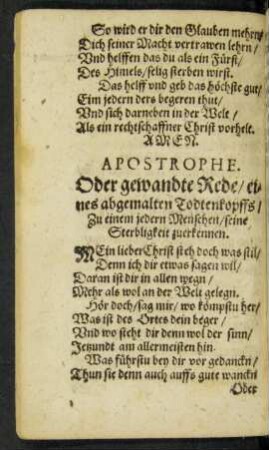 So wird er dir den Glauben mehren
Dich seiner Macht vertrawen lehrn/
Vnd helffen das du als ein Fürst/
Des Himels/selig sterben wirst.
Das helff vnd geb das höchste gut/
Eim jedern ders begeren thut/
Vnd sich darneben in der Welt/
Als ein rechtschaffner Christ vorhelt.
AMEN.
APOSTROPHE.
Oder gewandte Rede/ ei-
nes abgemalten Todtenkopffs/
Zu einem jedern Menschen/seine
Sterbligkeit zuerkennen.
MEin lieber Christ steh doch was stil/
Denn ich dir etwas sagen wil/
Daran ist dir in allen wegn/
Mehr als wol an der Welt gelegn.
Hör doch/sag mir/ wo kömpstu her/
Was ist des Ortes dein beger/
Vnd wo steht dir denn wol der sinn/
Jetzundt am allermeisten hin.
Was führstu bey dir vor gedanckn/
Thun sie denn auch auffs gute wanckn
Oder